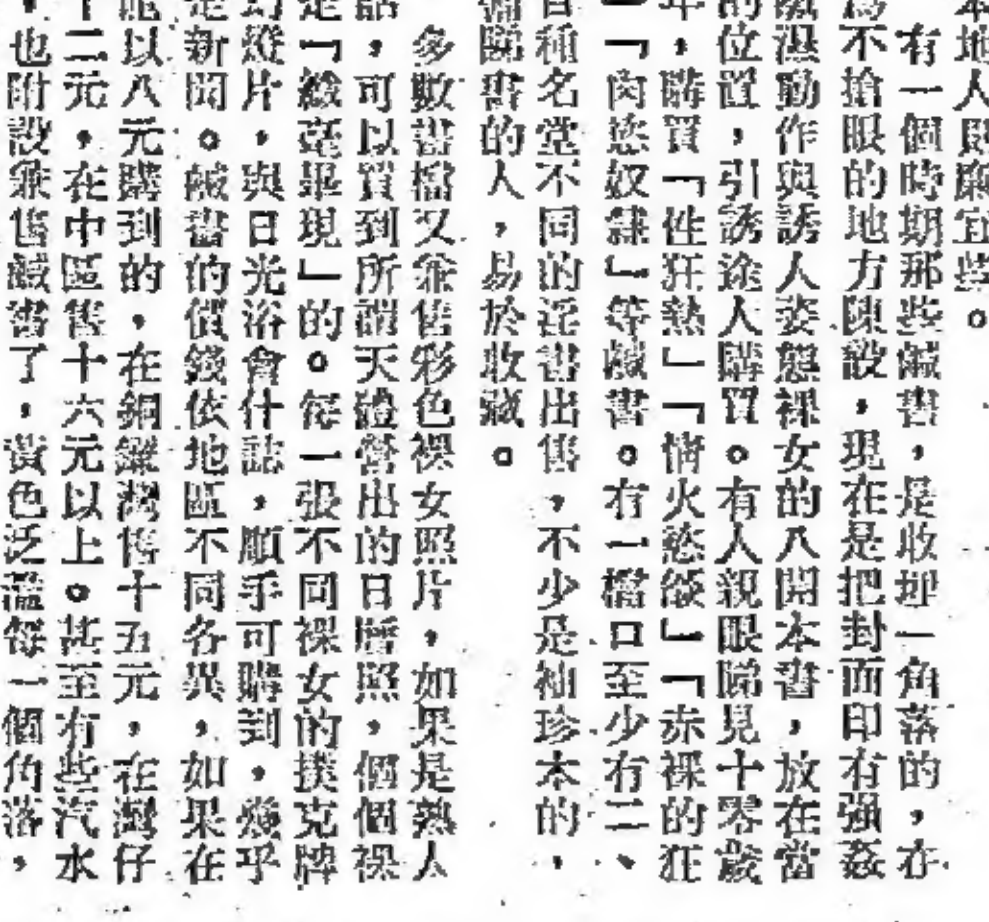 本地人則廉宜些。
有一個時期那些鹹書，是收埋一角落的，在
不搶眼的地方陳設，現在是把封面印有强姦
濕動作與誘人姿態裸女的八開本書，放在當
的位置，引誘途人購買。有人親眼睇見十零歲
年，購買「性狂熱」「情火慾燄」「赤裸的狂
」「肉慾奴隸」等鹹書。有一檔口至少有二、
百種名堂不同的淫書出售，不少是袖珍本的，
睇書的人，易於收藏。
多數書檔又兼售彩色裸女照片，如果是熟人
話，可以買到所謂天體營出的日曆照，個個裸
是「纖毫畢現」的。每一張不同裸女的撲克牌
幻燈片，與日光浴會什誌，順手可購到，幾乎
是新聞。鹹書的價錢依地區不同各異，如果在
能以八元購到的，在銅鑼灣售十五元，在灣仔
十二元，在中區售十六元以上。甚至有些汽水
，也附設兼售鹹書了，黃色泛濫每一個角落，